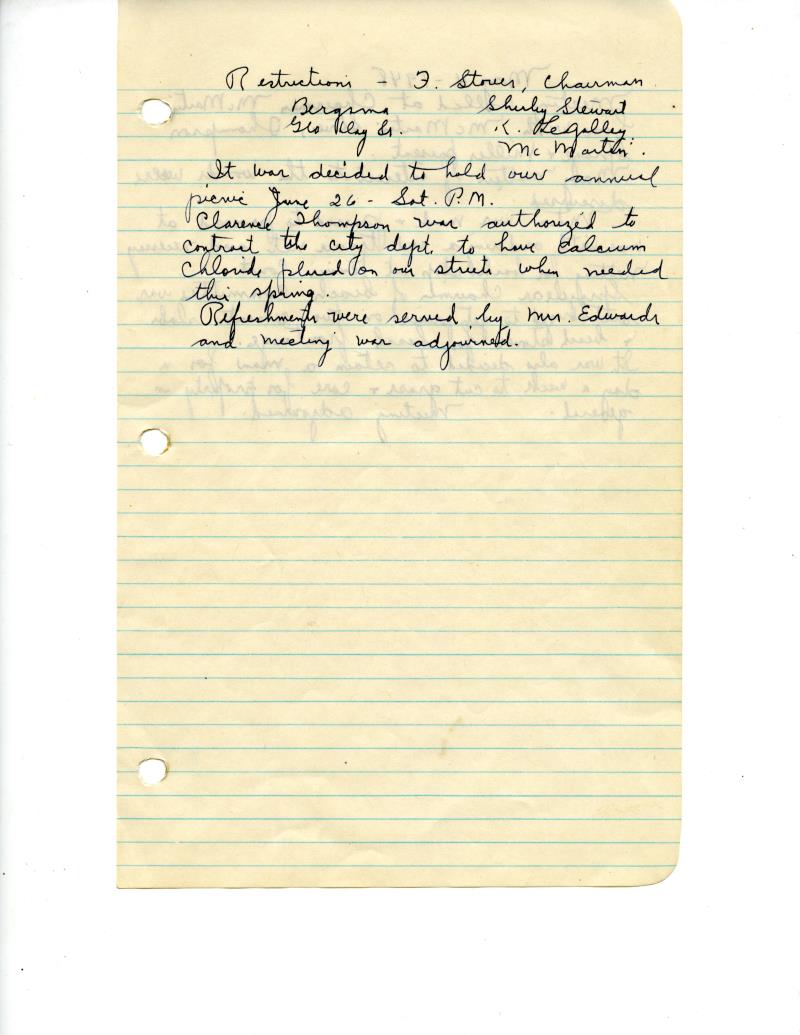 Restrictions - F. Stover, Chairman
Bergsma Shirley Stewart
Geo Clay Sr. K. LeGalley
McMartin.
It was decided to hold our annual
picnic June 26 - Sat. P.M.
Clarence Thompson was authorized to
contract the city dept. to have Calcium
Chloride placed on our streets when needed
this spring.
Refreshments were served by Mrs. Edwards
and meeting was adjourned.